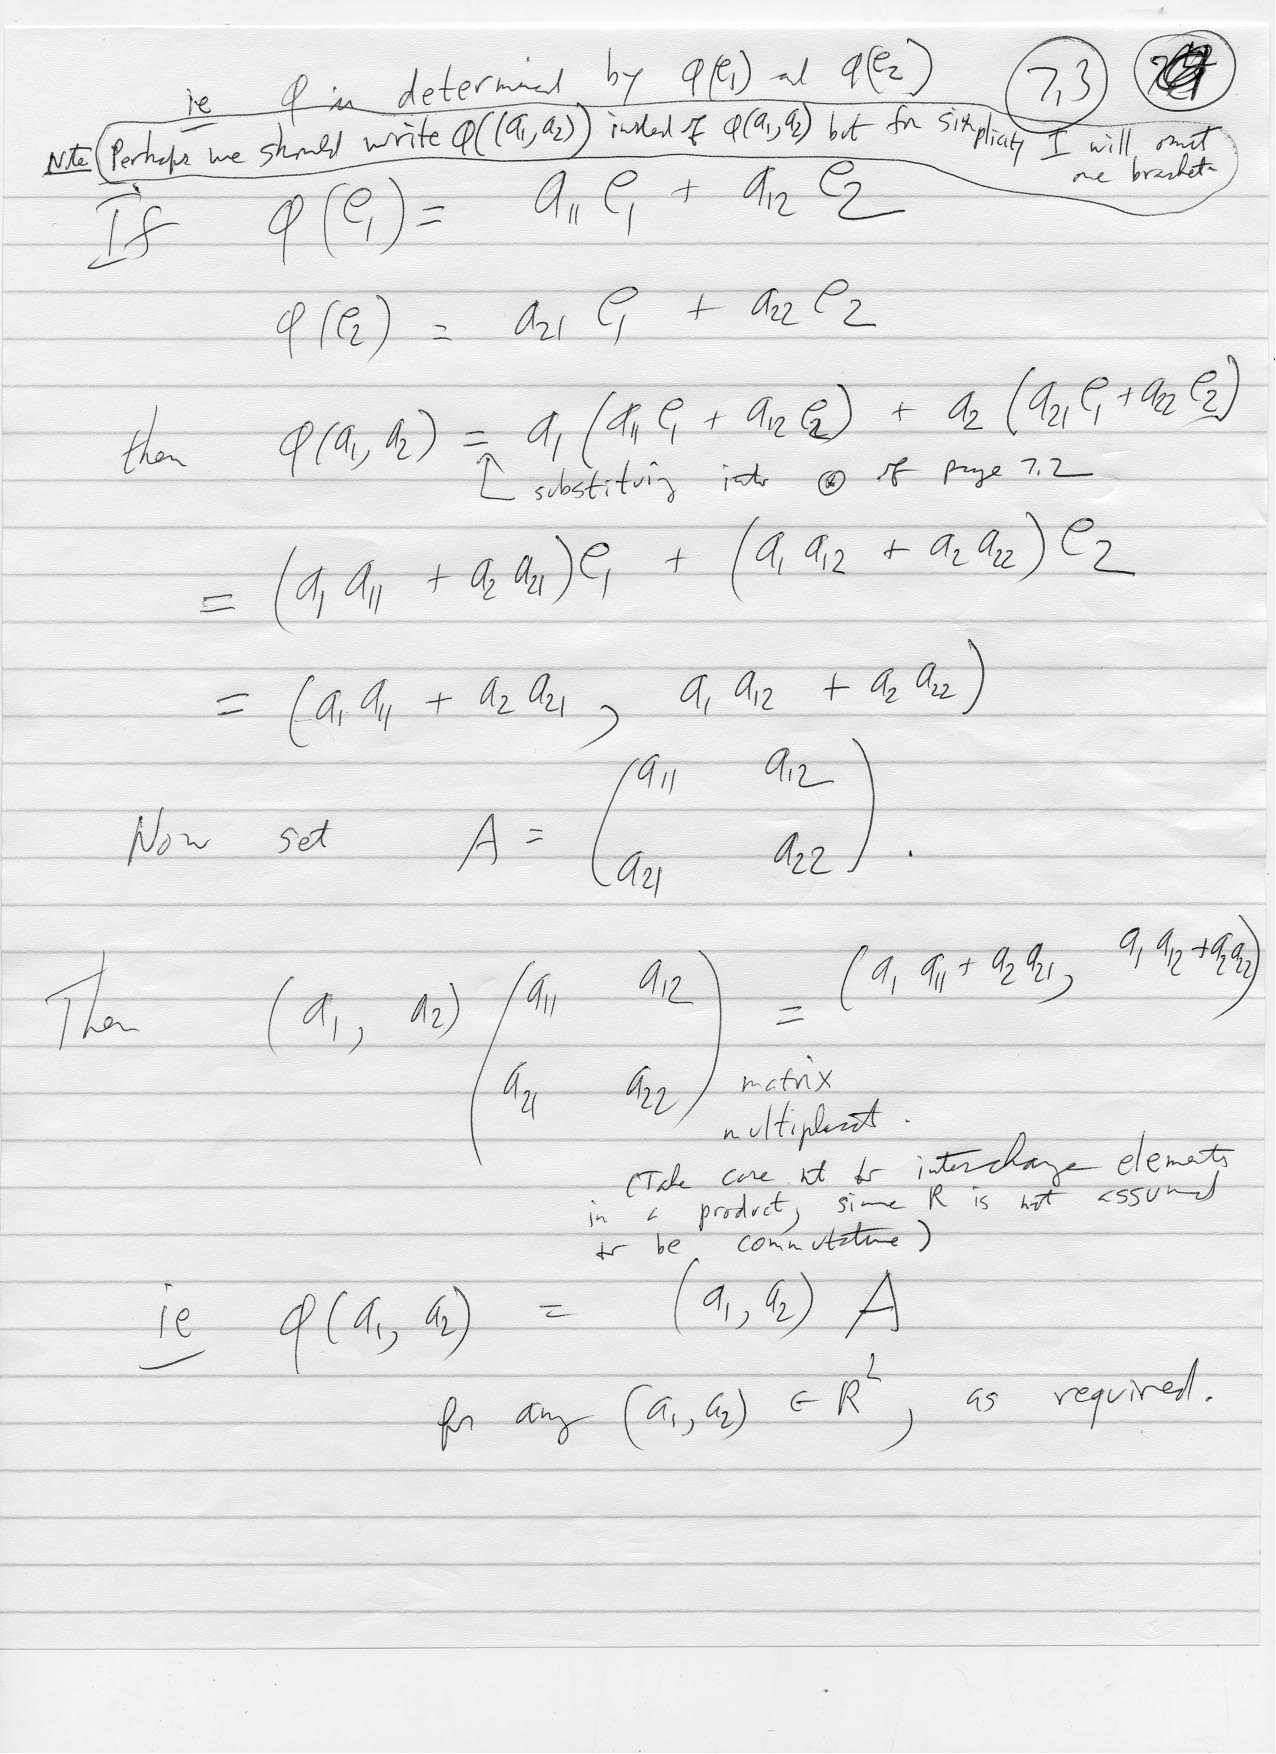 ie φ is determined by φ(e₁) and φ(e₂) 7.3
Note Perhaps we should write φ((a₁,a₂)) instead of φ(a₁,a₂) but for simplicity I will omit
one bracket
If φ(e₁) = a₁₁ e₁ + a₁₂ e₂
φ(e₂) = a₂₁ e₁ + a₂₂ e₂
then φ(a₁, a₂) = a₁ (a₁₁ e₁ + a₁₂ e₂) + a₂ (a₂₁ e₁ + a₂₂ e₂)
substituting into ⊛ of page 7.2
= (a₁ a₁₁ + a₂ a₂₁) e₁ + (a₁ a₁₂ + a₂ a₂₂) e₂
= (a₁ a₁₁ + a₂ a₂₁, a₁ a₁₂ + a₂ a₂₂)
Now set A = ( a₁₁ a₁₂
a₂₁ a₂₂ ) .
Then (a₁, a₂) ( a₁₁ a₁₂ = (a₁ a₁₁ + a₂ a₂₁, a₁ a₁₂ + a₂ a₂₂)
a₂₁ a₂₂ ) matrix
multiplicat .
(Take care not to interchange elements
in a product, since R is not assumed
to be commutative)
ie φ(a₁, a₂) = (a₁, a₂) A
for any (a₁, a₂) ∈ R², as required.